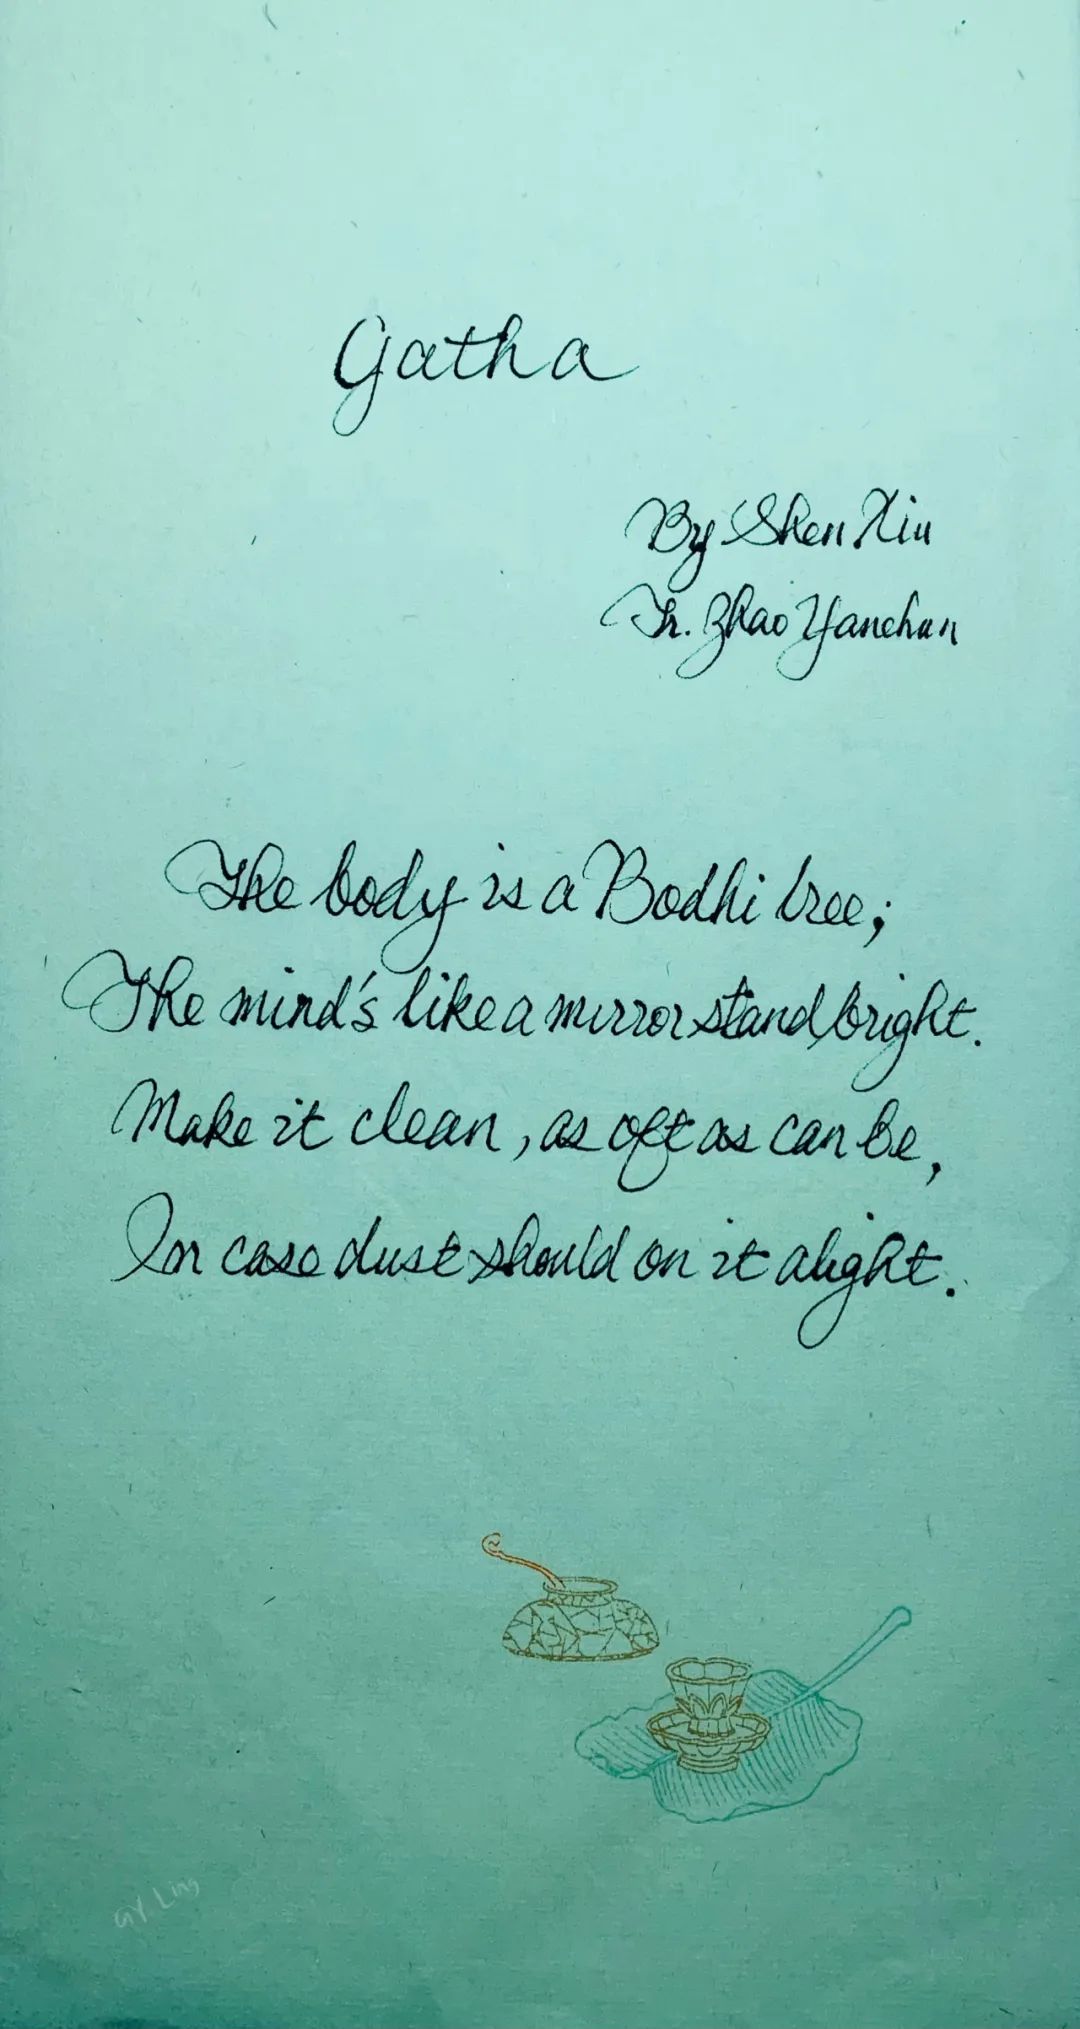 Gatha
By Shen Xiu
Tr. Zhao Yanchun
The body is a Bodhi tree;
The mind's like a mirror stand bright.
Make it clean, as oft as can be,
In case dust should on it alight.
GY. Ling